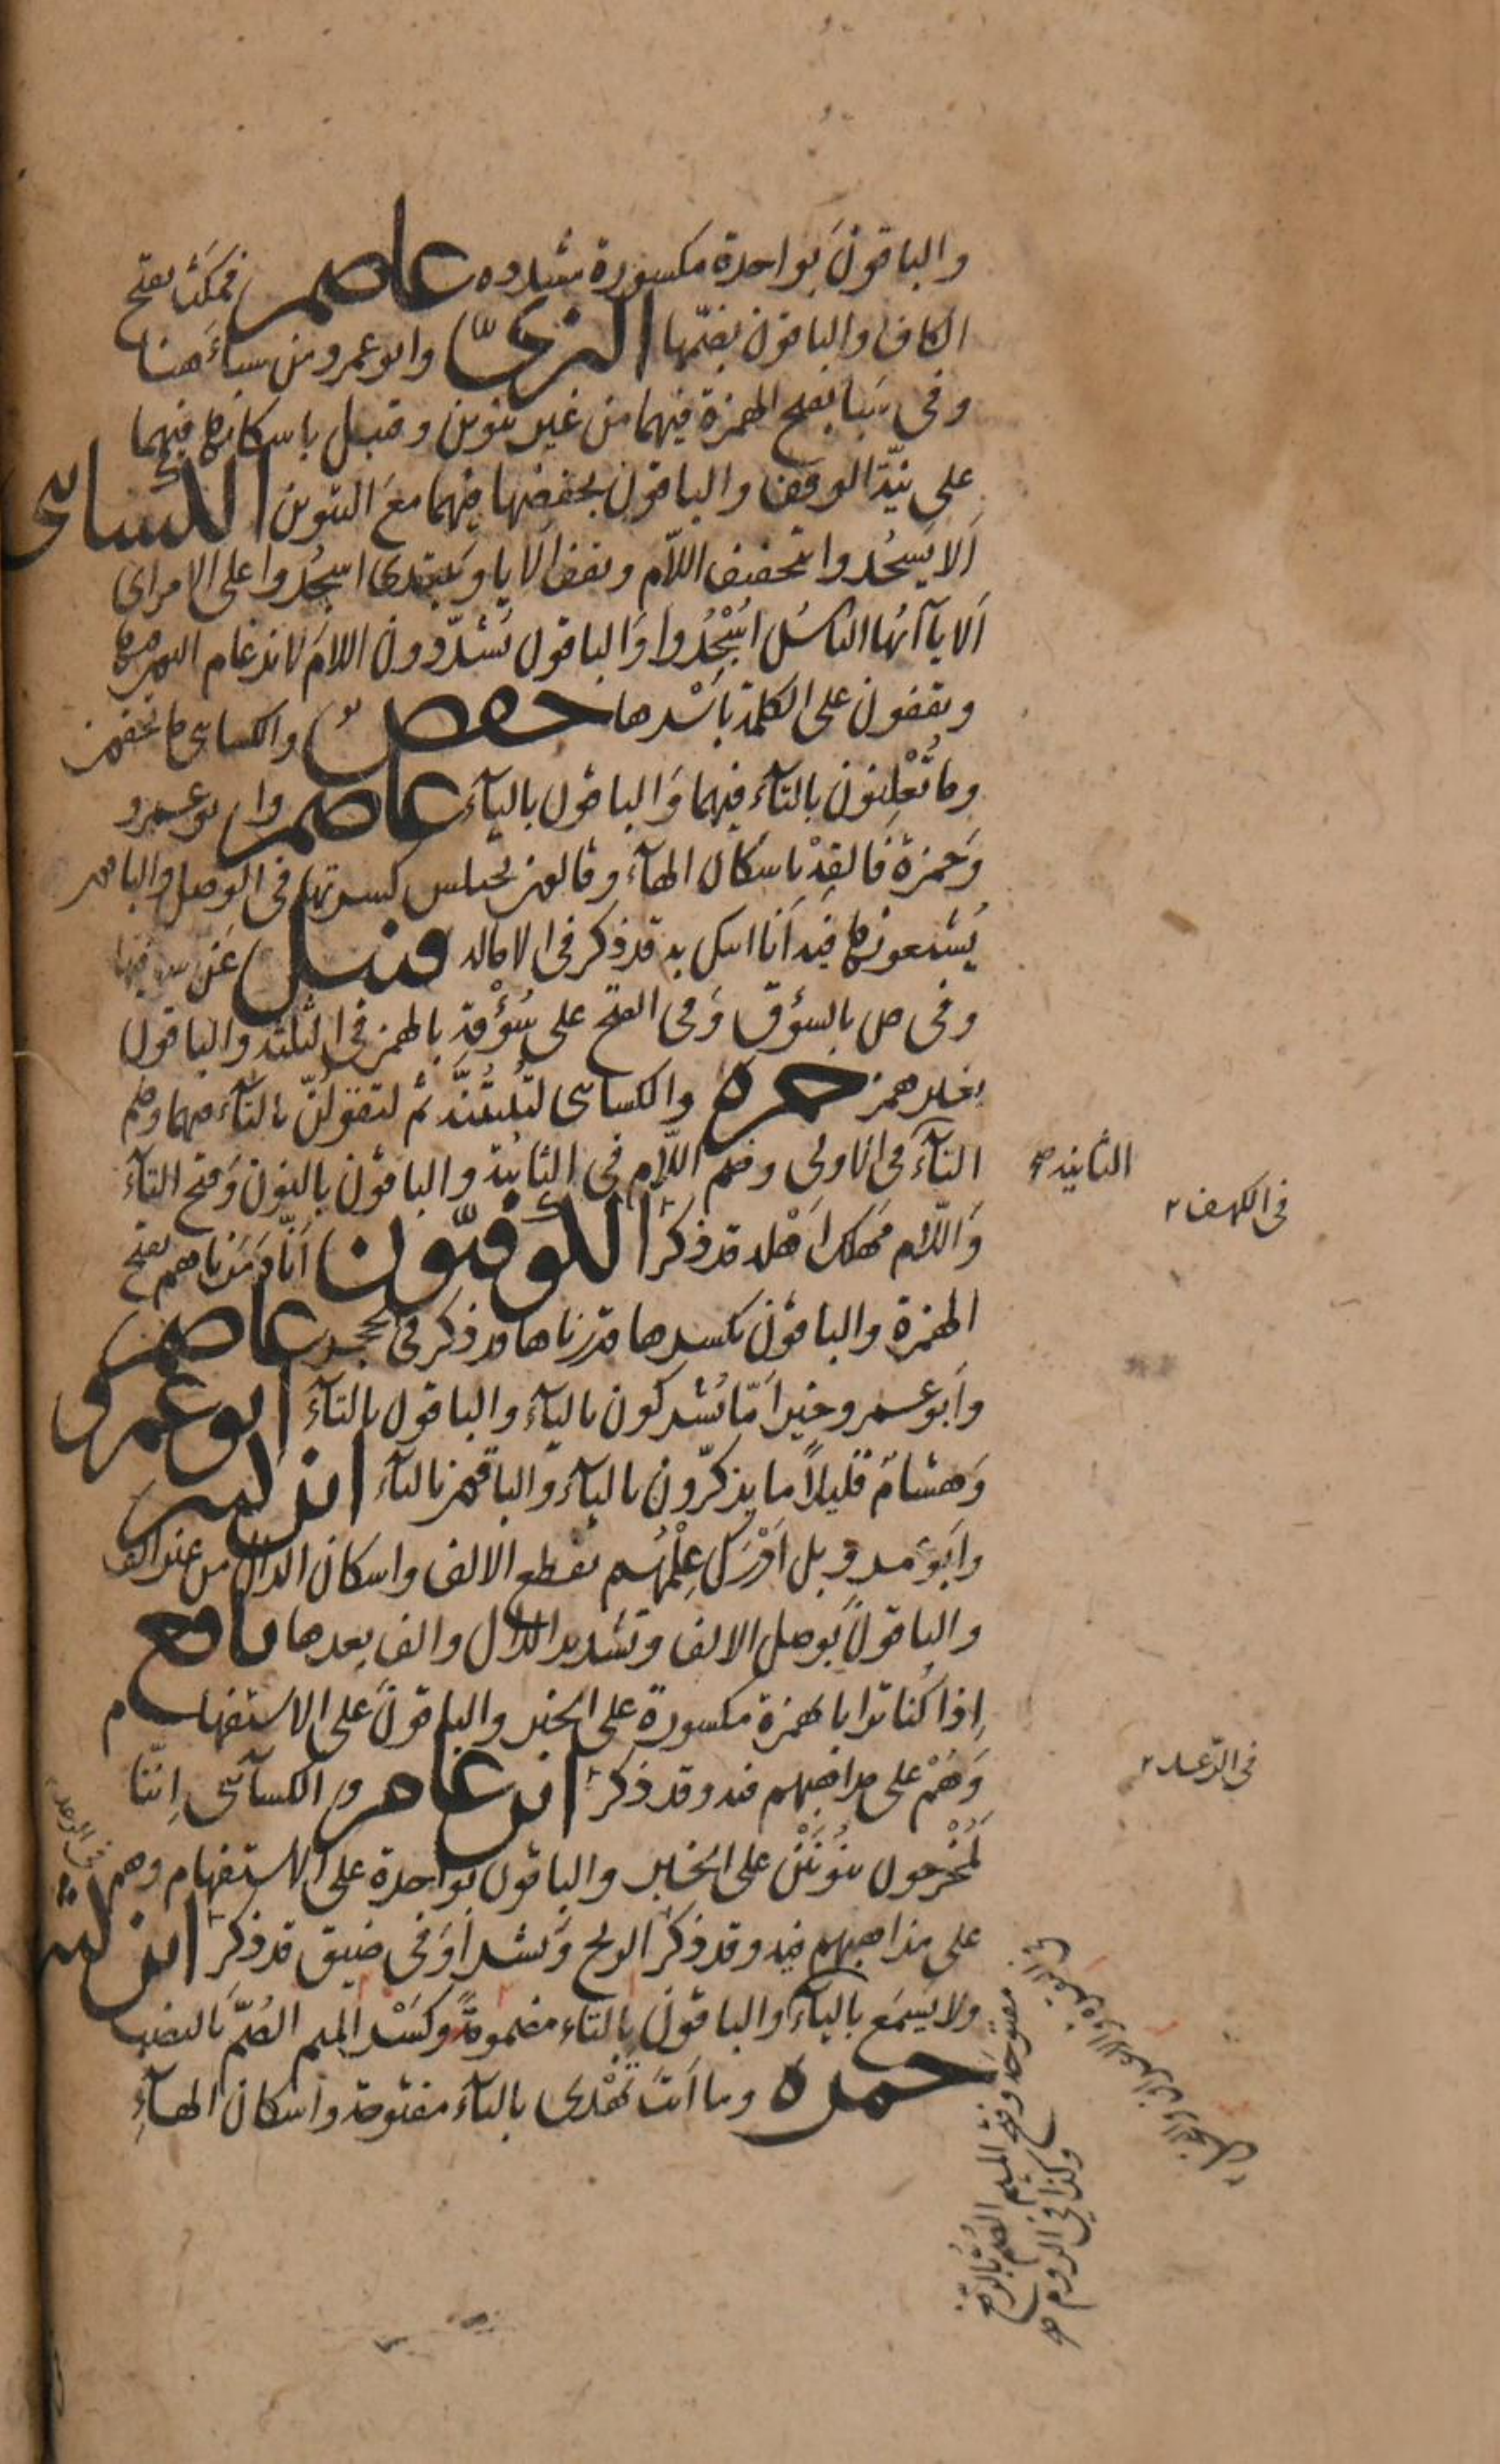 والباقون بواحدة مكسورة مشدده عاصم فمكث بفتح
الكاف والباقون بضمّها البزىّ وابو عمرو من سباءَ هنا
وفى سَبَا بفتح الهمزة فيهما من غير تنوين وقنبل باسكانها فيهما
على نيّة الوقف والباقون بخفضها فيهما معَ التنوين الكسائى
اَلا يَسجُدوا بتخفيف اللّام ويقف اَلا يا ويَبتدى اسجُدُوا على الامر اى
اَلا يا آيُها الناسُ اسْجُدُوا وَالباقون يُشدّدون اللامَ لاندغام النون فيها
ويقفون على الكلمة باَسْرها حفص والكسائى ما تخفون
وما تُعْلِنون بالتآء فيهما وَالباقون باليآء عاصم وابو عمرو
وَحمزة فالقِهْ باسكان الهآء وقالون يختلس كسرتها فى الوصل والباقون
يُشبعونها فيه اَنا اتيك به قد ذكر فى الاماله قنبل عَن ساقيها
وفى ص بالسؤق وَفى الفتح على سُؤْقه بالهمز فى الثلثة والباقون
بغير همز حمزه والكسائى لتُبيّتُنَّه ثم لتقولُنّ بالتآء فيهما وضم
التآء فى الاولى وضم اللّام فى الثانية والباقون بالنون وَفتح التآء
الثانيه صح
وَاللّام مَهلكَ اَهْله قد ذكر الكوفيّون اَنّا دَمّرناهم بفتح
فى الكهف ٢
الهمزة والباقون بكسرها قدرناها قد ذكر فى الحجر عاصم
وَاَبو عمرو خيراَمّا يُشركون باليآء والباقون بالتآءَ ابو عمرو
وَهشام قليلاً ما يذكّرون باليآء وَالباقون بالتآء ابن كثير
وابَو عمرو بل اَدْرَك عِلْمُهُم بقطع الالف واسكان الدال من غير الف
والباقونَ بوصل الالف وتشديد الدال والف بعدها نافع
اِذا كُنا ترابا بهمزة مكسورة على الخبر والباقونَ على الاستفهام
وَهُمْ على مذاهبهم فيه وقد ذكر ابن عامر والكسآئى اِنّنا
فى الرّعد ٢
لَمُخْرجون بنُونَيْن على الخبر والباقون بواحدة على الاستفهام وهم
فى الرعد
على مذاهبهم فيه وقد ذكر الريح وَنشراً وَفى ضيق قد ذكر ابن كثير
ولا يَسمَع باليآء والباقون بالتاء مضمومةً وكسْر الميم الصُمَّ بالنصب
حمزه وما اَنتَ تَهْدى بالتآء مفتوحة واسكان الهآءِ
مفتوحه وفتح الميم الصُمُّ بالرّفع
وكذا فى الروم صح
فى البقره والاعراف والنحل